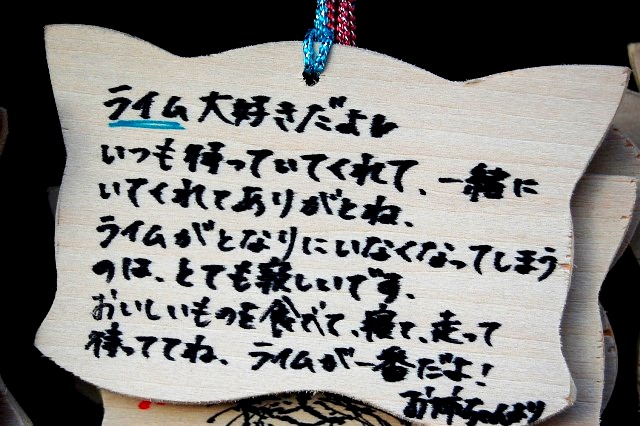 ライム大好きだよ
いつも待っていてくれて、一緒に
いてくれてありがとね、
ライムがとなりにいなくなってしまう
のは、とても寂しいです、
おいしいものを食べて、寝て、走って
待っててね、ライムが一番だよ!
お姉ちゃんより